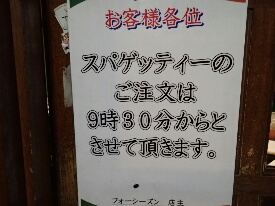 お客様各位
スパゲッティーの
ご注文は
9時30分からと
させて頂きます。
フォーシーズン 店主